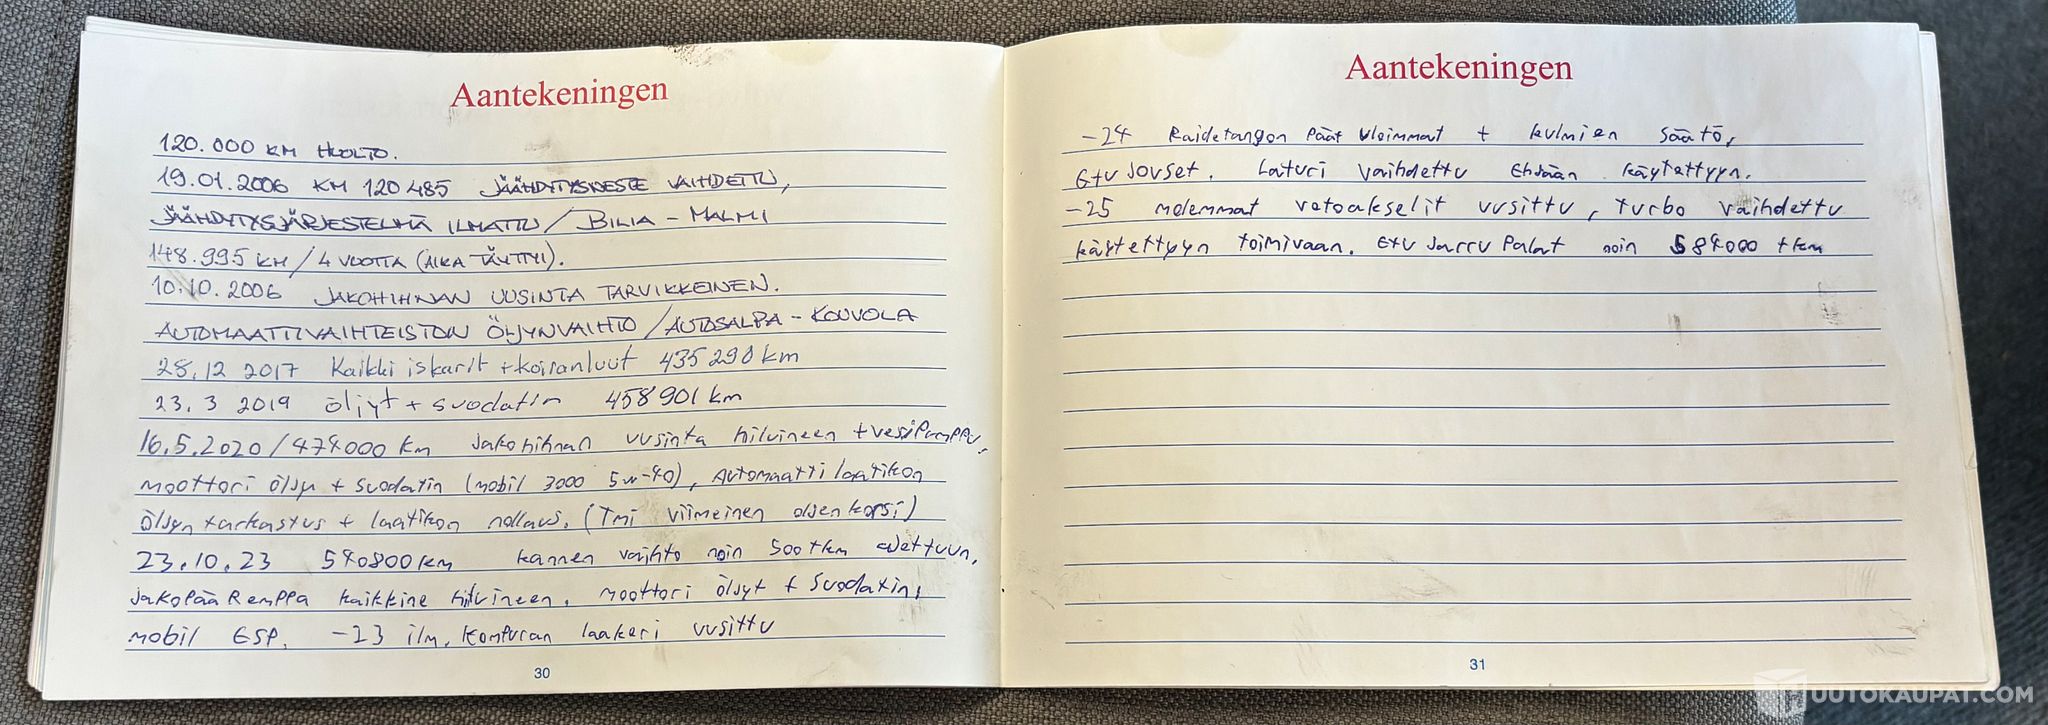 Aantekeningen
120.000 KM HUOLTO.
19.01.2006 KM 120485 JÄÄHDYTYSNESTE VAIHDETTU,
JÄÄHDYTYSJÄRJESTELMÄ ILMATTU / BILIA - MALMI
148.995 KM / 4 VUOTTA (AIKA TÄYTTYI).
10.10.2006 JAKOHIHNAN UUSINTA TARVIKKEINEN.
AUTOMAATTIVAIHTEISTON ÖLJYNVAIHTO / AUTOSALPA - KOUVOLA
28.12 2017 Kaikki iskarit + koiranluut 435290 km
23.3 2019 öljyt + suodatin 458901 km
16.5.2020 / 474000 km jakohihnan uusinta hilvineen + vesipumppu,
moottori öljy + suodatin (mobil 3000 5w-40), Automaatti laatikon
öljyn tarkastus + laatikon nollaus. (Tmi viimeinen oljenkorsi)
23.10.23 540800 km kannen vaihto noin 500 tkm ajettuun.
Jakopää Remppa kaikkine hilvineen. moottori öljyt + suodatin,
mobil ESP. -23 ilm. Kompuran laakeri uusittu
30
Aantekeningen
-24 Raidetangon päät uloimmat + kulmien säätö,
Etu Jouset. Laturi vaihdettu Ehjään käytettyyn.
-25 molemmat vetoakselit uusittu, turbo vaihdettu
käytettyyn toimivaan. Etu Jarru Palat noin 584000 tkm
31
UUTOKAUPAT.COM